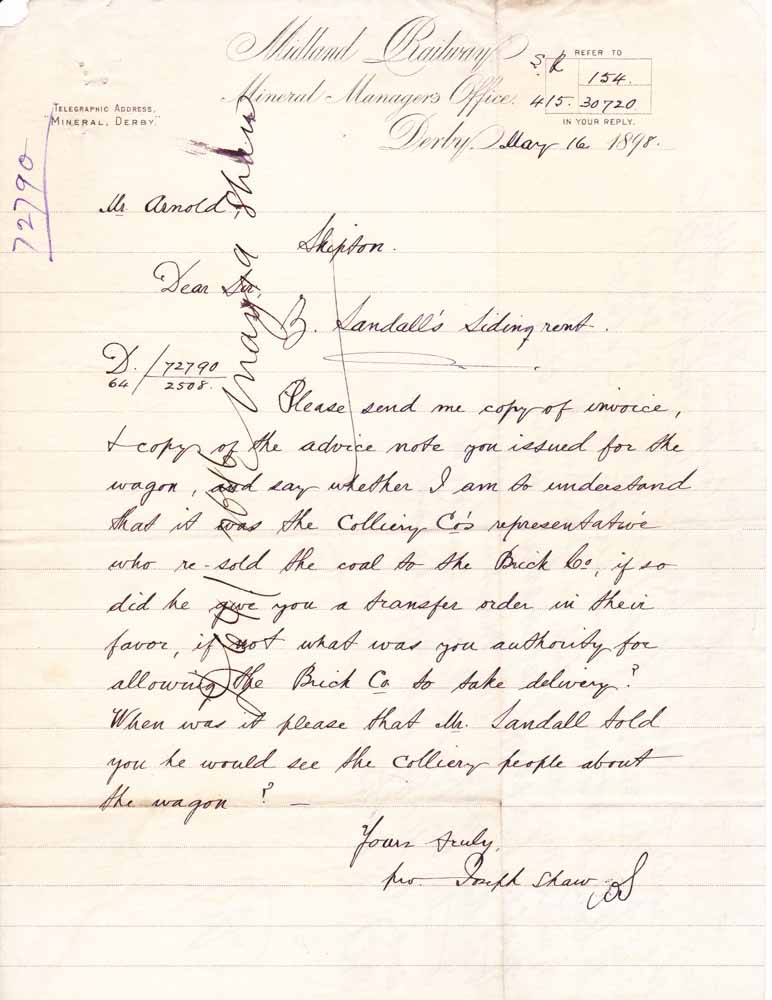 Midland Railway
Mineral Managers Office.
Derby. May 16 1898.
REFER TO
S.R 154.
415. 30720
IN YOUR REPLY.
TELEGRAPHIC ADDRESS,
"MINERAL, DERBY."
72790
Mr Arnold
Skipton.
Dear Sir,
B. Sandall's Siding rent.
D. / 72790
64 / 2508.
Please send me copy of invoice,
& copy of the advice note you issued for the
wagon, and say whether I am to understand
that it was the Colliery Co's representative
who re-sold the coal to the Brick Co, if so
did he give you a transfer order in their
favor, if not what was you authority for
allowing the Brick Co to take delivery?
When was it please that Mr. Sandall told
you he would see the Colliery people about
the wagon? —
Yours truly,
pro. Joseph Shaw
May